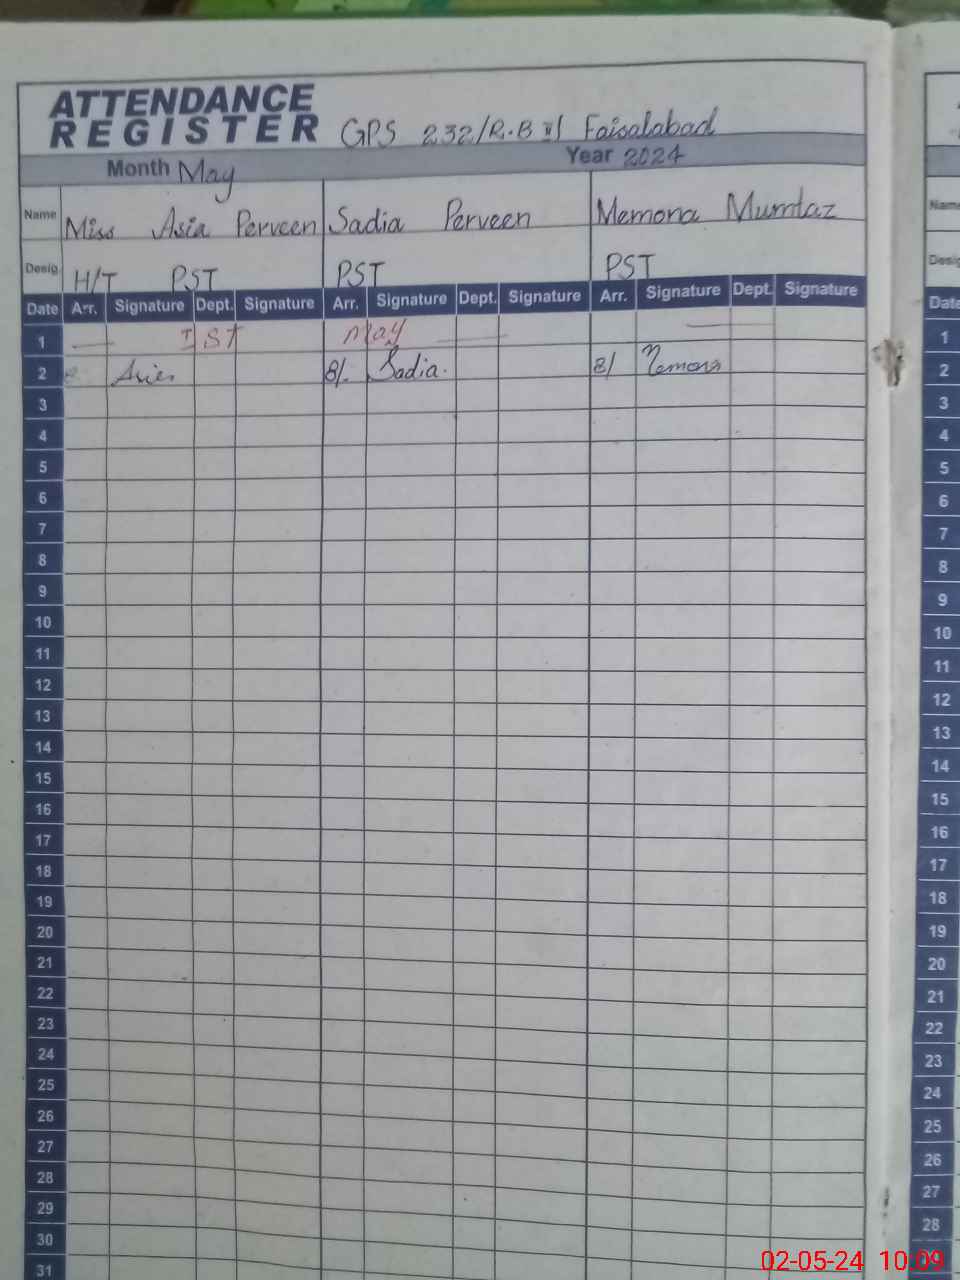 ATTENDANCE
REGISTER GPS 232/R.B II Faisalabad
Month May Year 2024
Name Miss Asia Perveen Sadia Perveen Memona Mumtaz
Desig. H/T PST PST PST
Date Arr. Signature Dept. Signature Arr. Signature Dept. Signature Arr. Signature Dept. Signature
1 — Ist May — —
2 8/. Sadia. 8/ Memona
3
4
5
6
7
8
9
10
11
12
13
14
15
16
17
18
19
20
21
22
23
24
25
26
27
28
29
30
31
Name
Desig
Date
1
2
3
4
5
6
7
8
9
10
11
12
13
14
15
16
17
18
19
20
21
22
23
24
25
26
27
28
02-05-24 10:09